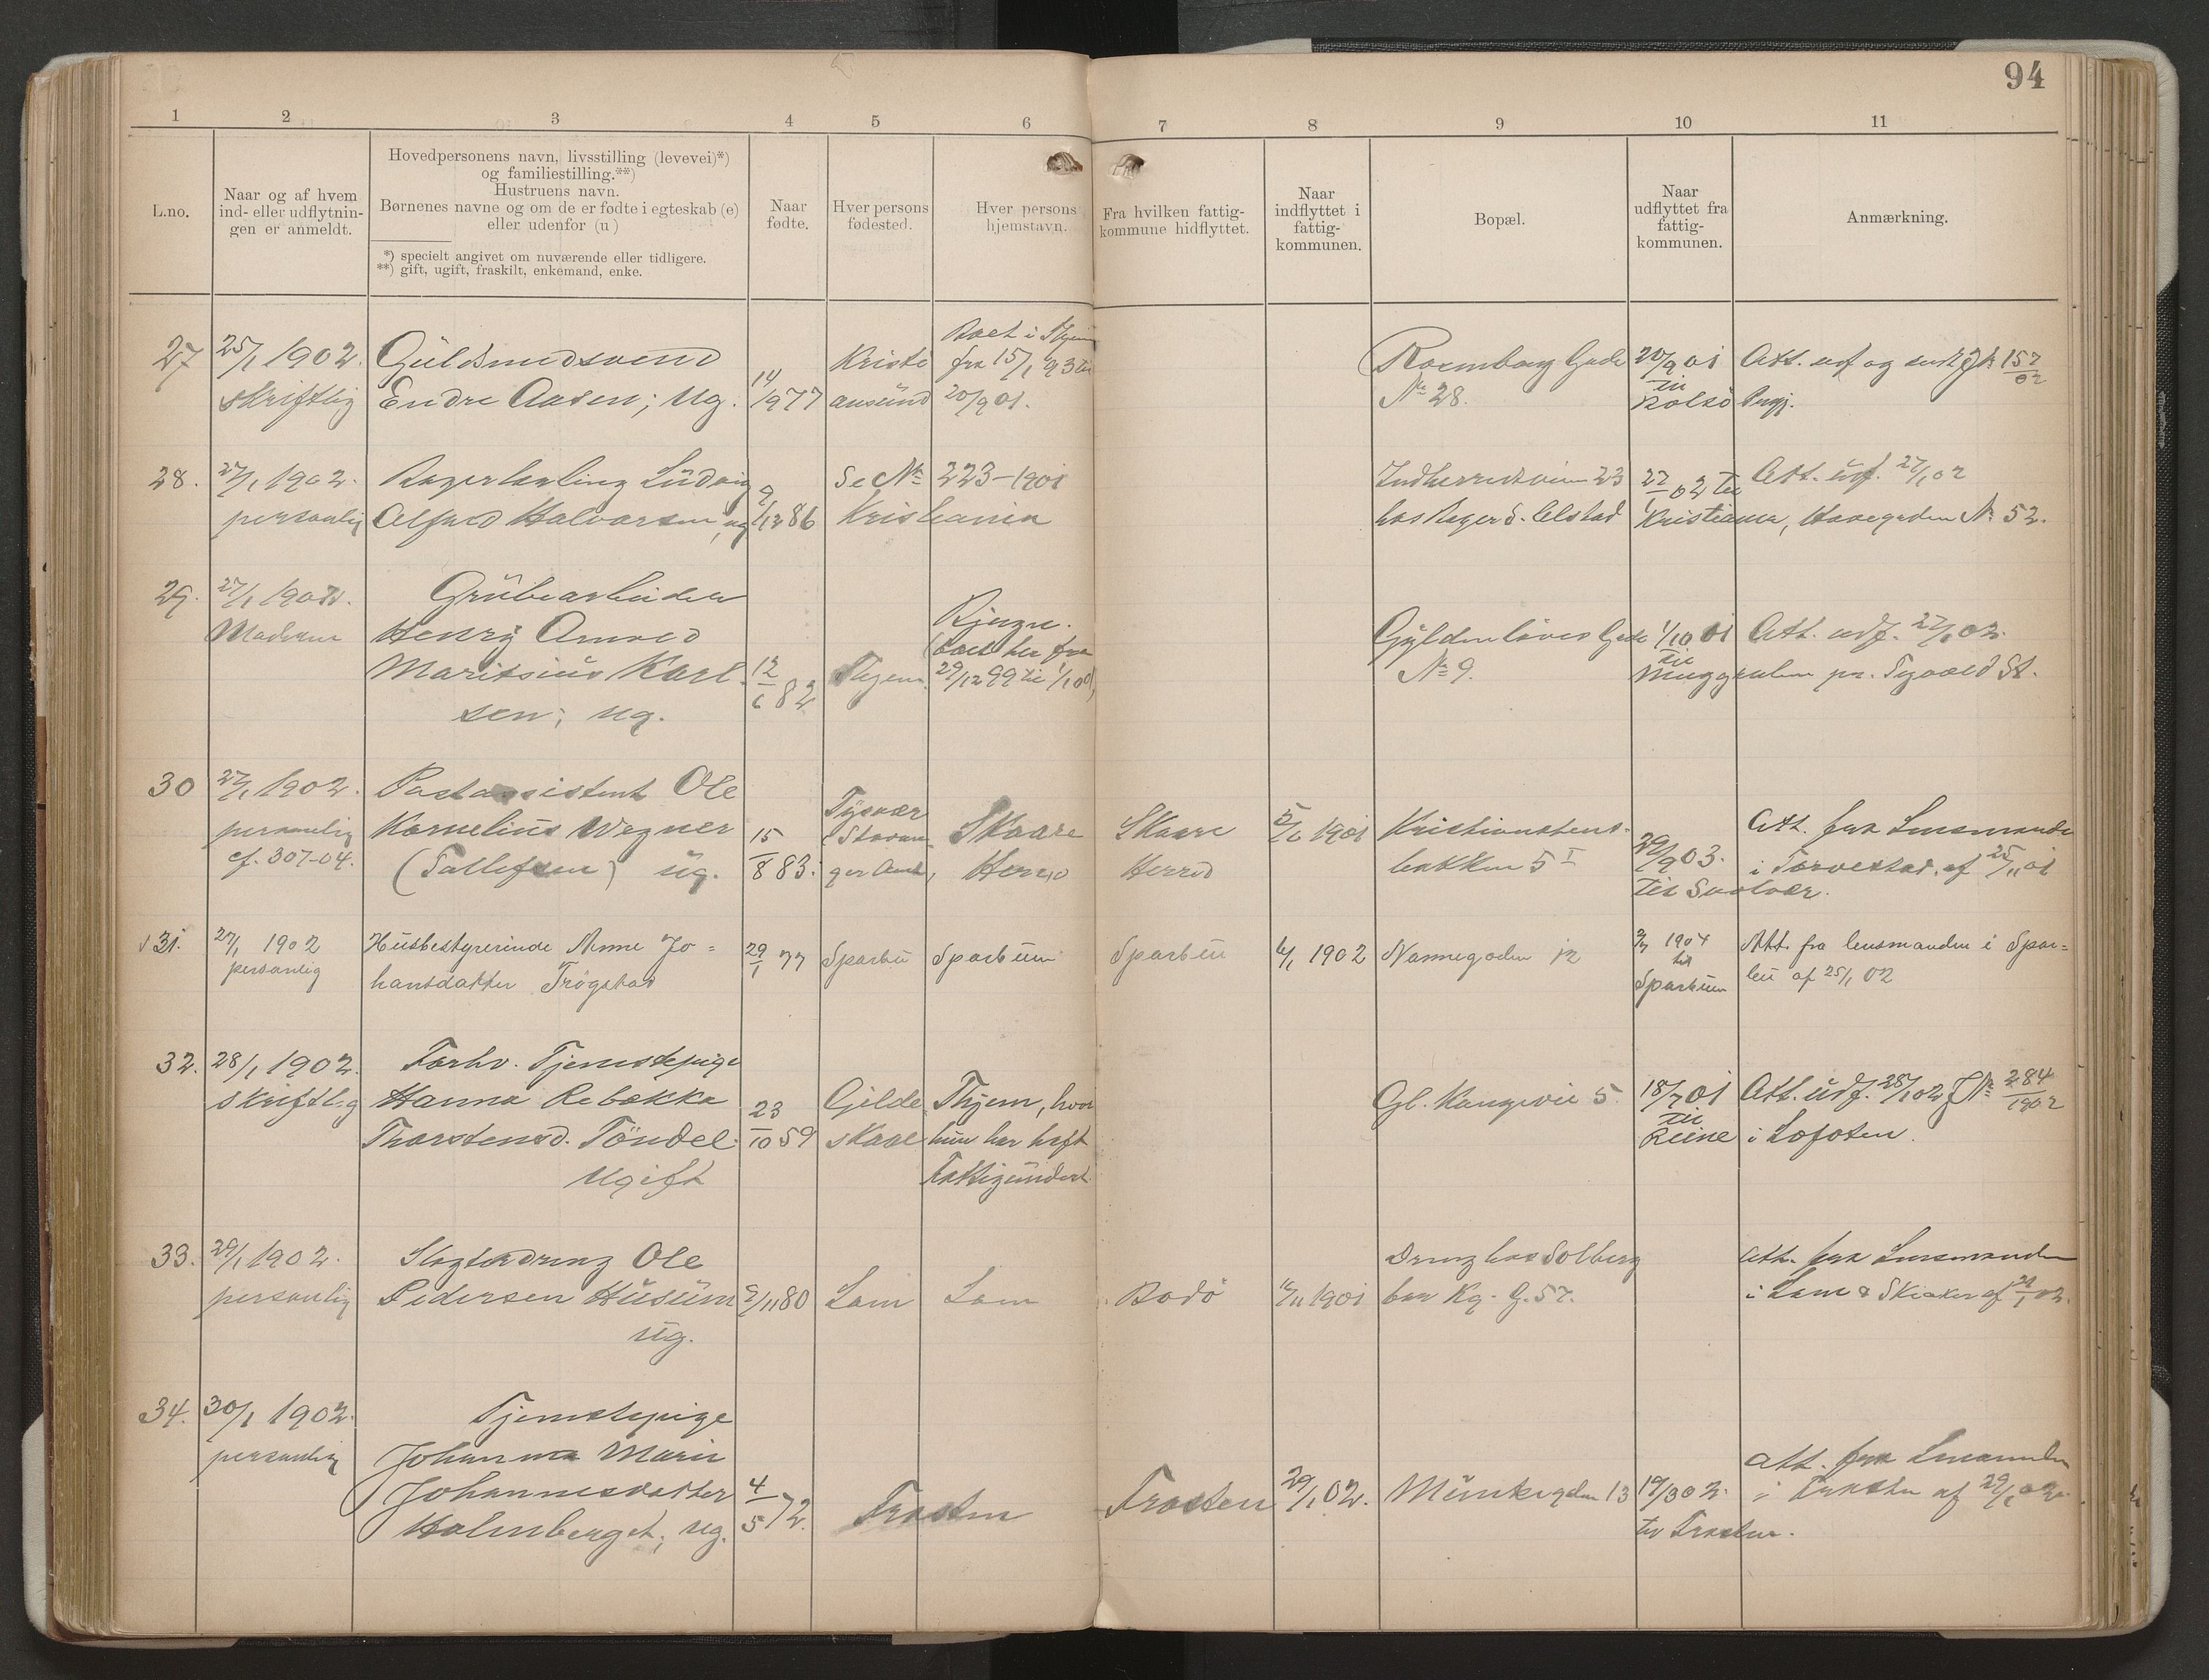 94
1 2 3 4 5 6 7 8 9 10 11
L.no.
Naar og af hvem
ind- eller udflytnin-
gen er anmeldt.
Hovedpersonens navn, livsstilling (levevei)*)
og familiestilling.**)
Hustruens navn.
Børnenes navne og om de er fødte i egteskab (e)
eller udenfor (u)
*) specielt angivet om nuværende eller tidligere.
**) gift, ugift, fraskilt, enkemand, enke.
Naar
fødte.
Hver persons
fødested.
Hver persons
hjemstavn.
Fra hvilken fattig-
kommune hidflyttet.
Naar
indflyttet i
fattig-
kommunen.
Bopæl.
Naar
udflyttet fra
fattig-
kommunen.
Anmærkning.
27
25/1 1902.
skriftlig
Guldsmedsvend
Endre Aasen; ug.
14
1977
Kristi
ansund
Boet i Thjem
fra 15/1 93 til
20/9 01.
Gade
№ 28.
20/9 01
til
Att. udf og sendt Jk 157/02
28.
27/1 1902.
personlig
Bagerlærling Ludvig
Alfred Halvorsen, ug
9/12 86
Se № 223-1901
Kristiania
Indherredsveien 23
hos Bager S. Alstad
27/1 02 til
Kristiania, Havegaden № 52.
Att. udf. 27/1 02
29.
27/1 1902.
Moderen
Grubearbeider
Henry Arnved
Maritsius Karl-
sen; ug.
12/6 82
Thjem.
(boet her fra
29/12 99 til 1/10 01)
Gyldenløves Gade
№ 9.
1/10 01
til
Muggruben pr. Tyvold St.
Att. udf. 27/1 02.
30
27/1 1902.
personlig
cf. 307-04.
Postassistent Ole
Kornelius Wegner
(Tollefsen) ug.
15/8 83.
Tysvær
(Stavan-
ger Amt,
Skaare
Herred
Skaare
Herred
5/6 1901
Kristianstens-
bakken 5 I
29/9 03.
til Svolvær.
Att. fra Lensmanden
i Torvestad af 25/11 01
31.
27/1 1902
personlig
Husbestyrerinde Anne Jo=
hansdatter Trøgstad
29/1 77
Sparbu
Sparbuen
Sparbu
6/1 1902
Nannegaden 12
2/7 1904
til
Sparbuen
Att. fra lensmanden i Spar=
bu af 25/1 02
32.
28/1 1902.
skriftlig
Forhv. Tjenestepige
Hanna Rebekka
Thorstensd. Tøndel
Ugift
23/10 59
Gilde
skaal
Thjem, hvor
hun har havt
Fattigunderst.
Gl. Kongevei 5
18/7 01
til
Reine i Lofoten.
Att. udf. 28/1 02 J№ 284/1902
33.
29/1 1902.
personlig
Slagterdreng Ole
Pedersen Husum
ug.
2/11 80
Lom
Lom
Bodø
16/11 1901
Dreng hos Solberg
Kg. G. 57.
Att. fra Lensmanden
i Lom & Skiaker af 29/1 02.
34.
30/1 1902.
personlig
Tjenestepige
Johanna Marie
Johannesdatter
Holmberget; ug.
4/5 72.
Frosten
Frosten
29/1 02.
Munkegaden 13
19/3 02.
til Frosten.
Att. fra Lensmanden
i Frosten af 29/1 02.